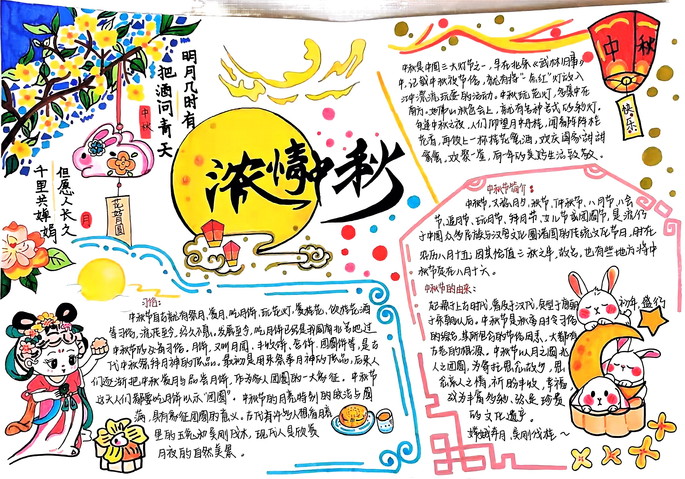 明月几时有
把酒问青天
中秋
花好月圆
但愿人长久
千里共婵娟
月
浓情中秋
中秋
快乐
中秋是中国三大灯节之一，早在北宋《武林旧事》
中，记载中秋夜节俗，就有将“一点红”灯放入
江中漂流玩耍的活动。中秋玩花灯，多集中在
南方。如佛山秋色会上，就有各种各式的彩灯。
每逢中秋之夜，人们仰望月中丹桂，闻着阵阵桂
花香，再饮上一杯桂花蜜酒，欢庆阖家甜甜
蜜蜜，欢聚一座，
中秋节简介：
中秋节，又称月夕、秋节、仲秋节、八月节、八月会、
节、追月节、玩月节、拜月节、女儿节或团圆节，是流行
于中国众多民族与汉字文化圈诸国的传统文化节日，时在
农历八月十五；因其恰值三秋之半，故名，也有些地方将中
秋节定在八月十六。
中秋节的由来：
起源于上古时代，普及于汉代，定型于唐朝初年，盛行
于宋朝以后。中秋节是秋季时令习俗
的综合，其所包含的节俗因素，大都有
古老的渊源。中秋节以月之圆兆
人之团圆，为寄托思念故乡，思
念亲人之情，祈盼丰收、幸福，
成为丰富多彩、弥足珍贵
的文化遗产。
嫦娥奔月 吴刚伐桂～
习俗：
中秋节自古就有祭月、赏月、吃月饼、玩花灯、赏桂花、饮桂花酒
等习俗，流传至今，经久不息。发展至今，吃月饼已经是中国南北各地过
中秋节的必备习俗。月饼，又叫月团、丰收饼、宫饼、团圆饼等，是古
代中秋祭拜月神的供品。最初是用来祭奉月神的供品，后来人
们逐渐把中秋赏月与品尝月饼，作为家人团圆的一大象征。中秋节
这天人们都要吃月饼以示“团圆”。中秋节的月亮特别的皎洁与圆
满，具有象征团圆的意义。古代有许多人想着月
里的玉兔和吴刚伐木，现代人具欣赏
月夜的自然美景。